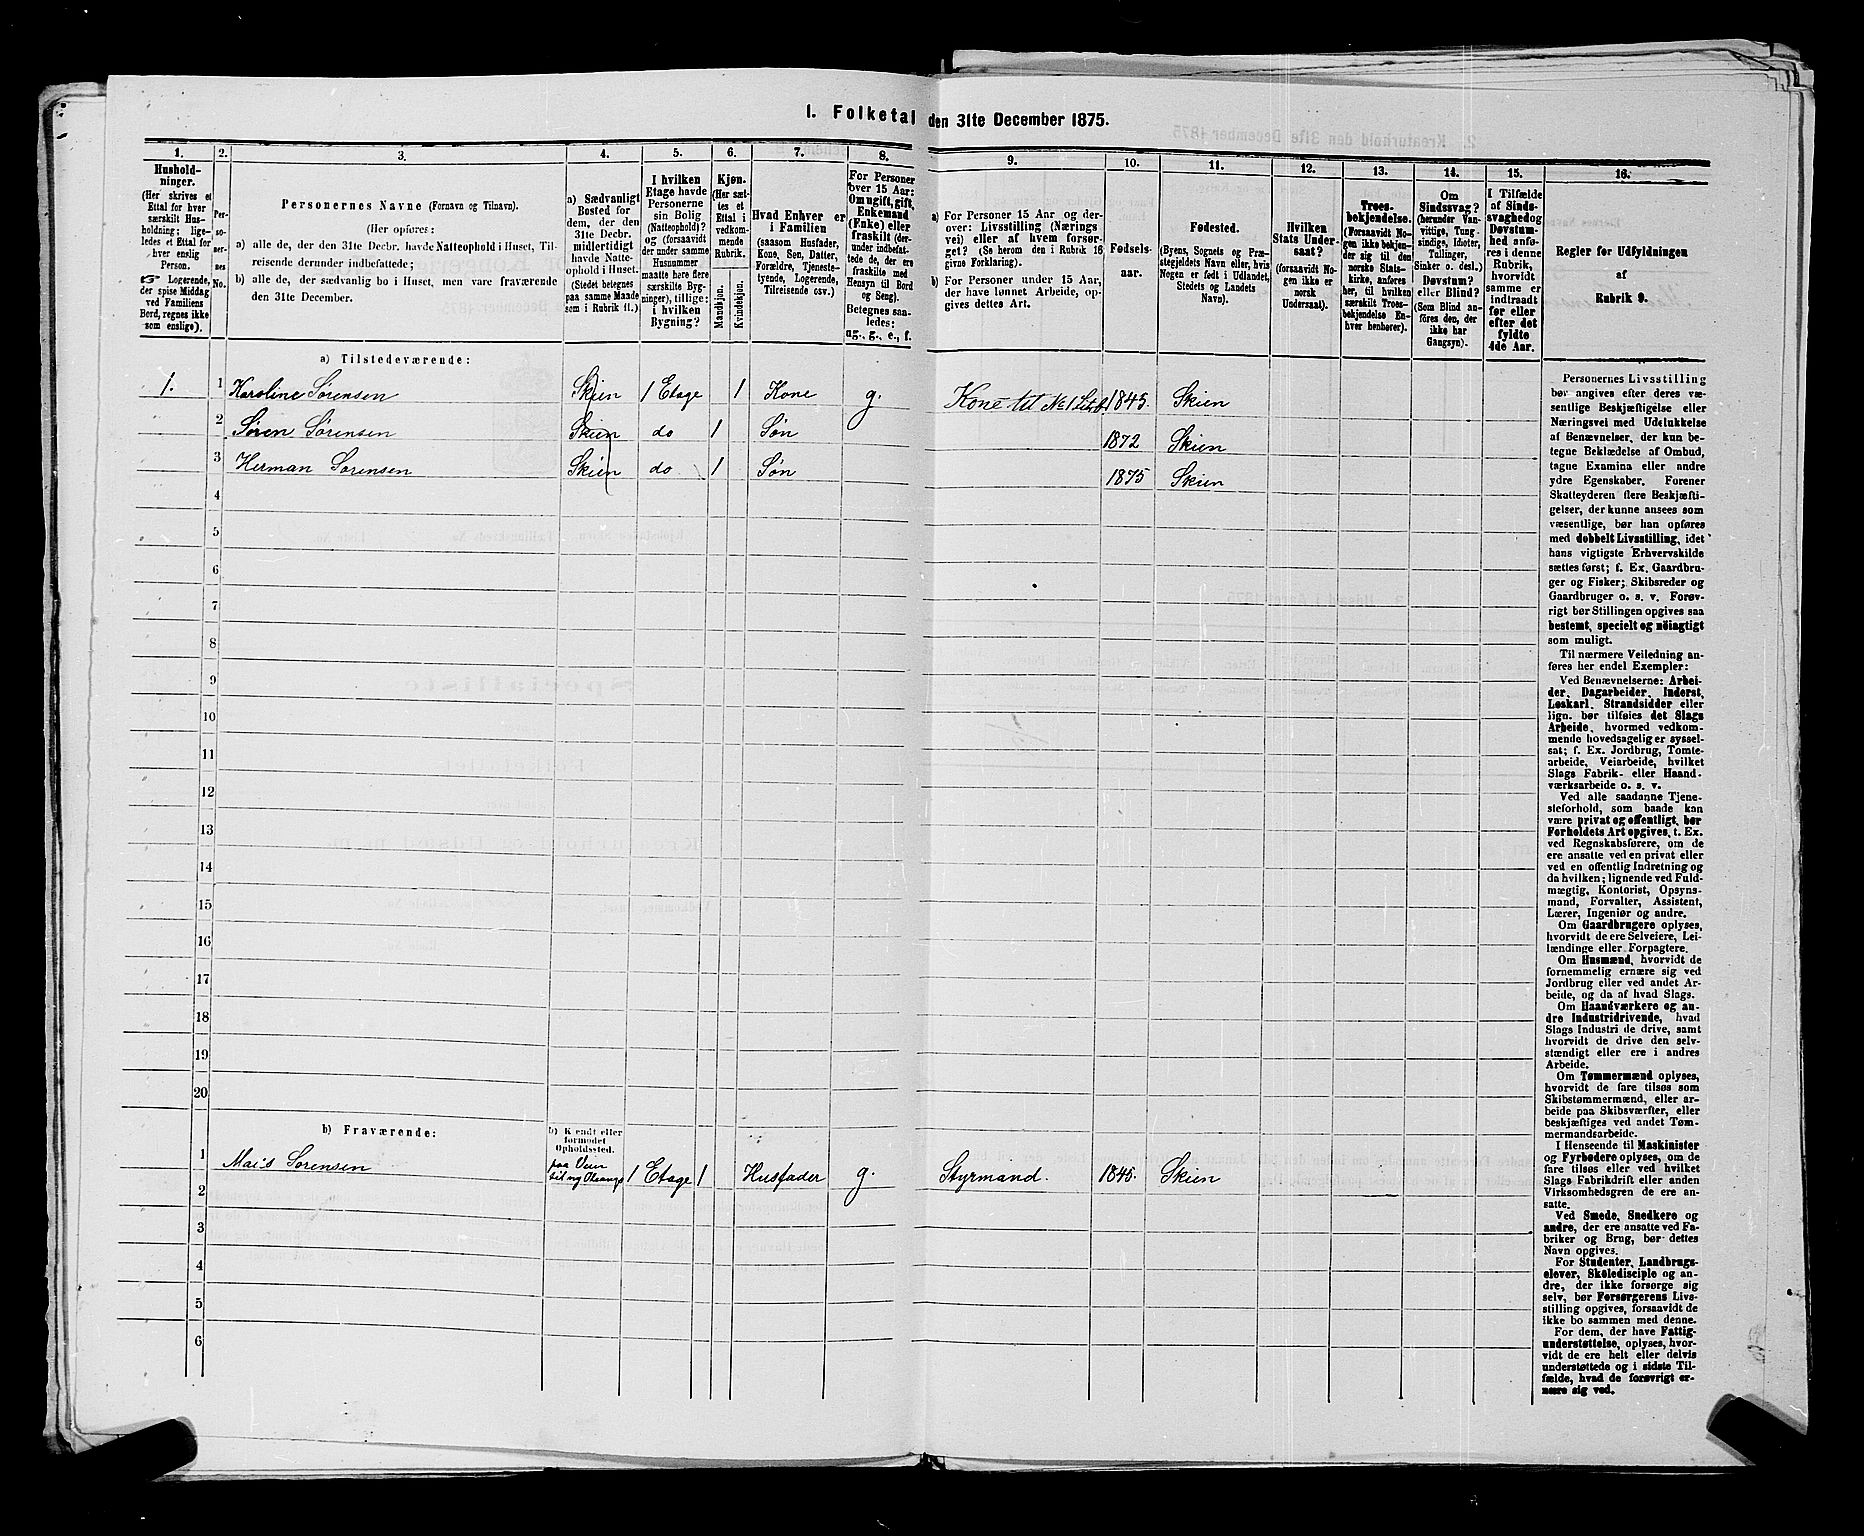 1. Folketal den 31te December 1875.
1. 2. 3. 4. 5. 6. 7. 8. 9. 10. 11. 12. 13. 14. 15. 16.
Husholdninger.
(Her skrives et
Ettal for hver
særskilt Husholdning; ligeledes
et Ettal for
hver enslig
Person.
Logerende,
der spise Middag
ved Familiens
Bord, regnes ikke
som enslige).
Personernes No.
Personernes Navne (Fornavn og Tilnavn).
(Her opføres:
a) alle de, der den 31te Decbr. havde Natteophold i Huset, Tilreisende derunder indbefattede;
b) alle de, der sædvanlig bo i Huset, men vare fraværende
den 31te December.
a) Sædvanligt
Bosted for
dem, der den
31te Decbr.
midlertidigt
havde Natteophold
i Huset.
(Stedet betegnes
paa samme Maade
som i Rubrik 11.)
I hvilken
Etage havde
Personerne
sin Bolig
(Natteophold)?
og (forsaavidt
der under samme
Husnummer
maatte høre flere
særskilte Bygninger),
tillige:
i hvilken
Bygning?
Kjøn.
(Her sættes
et
Ettal i
vedkommende
Rubrik.
Mandkjøn.
Kvindekjøn.
Hvad Enhver er
i Familien
(saasom Husfader,
Kone, Søn, Datter,
Forældre, Tjenestetyende,
Logerende,
Tilreisende osv.)
For Personer
over 15 Aar:
Om ugift, gift,
Enkemand
(Enke) eller
fraskilt (derunder
indbefattede
de, der ere
fraskilte med
Hensyn til Bord
og Seng).
Betegnes saaledes:
ug., g., e., f.
a) For Personer 15 Aar og derover:
Livsstilling (Næringsvei)
eller af hvem forsørget?
(Se herom den i Rubrik 16
givne Forklaring).
b) For Personer under 15 Aar,
der have lønnet Arbeide, opgives
dettes Art.
Fødselsaar.
Fødested.
(Byens, Sognets og Præstegjeldets
Navn eller, hvis
Nogen er født i Udlandet,
Stedets og Landets
Navn).
Hvilken
Stats Undersaat?
(forsaavidt Nogen
ikke er
norsk
Undersaat).
Troesbekjendelse.
(Forsaavidt Nogen
ikke bekjender
sig til den
norske Statskirke,
anføres
her, til hvilken
særskilt Troesbekjendelse
Enhver
henhører).
Om
Sindssvag?
(herunder Vanvittige,
Tungsindige,
Idioter,
Tullinger,
Sinker o. desl.)
Døvstum?
eller Blind?
(Som Blind anføres
den, der
ikke har
Gangsyn).
I Tilfælde
af Sindssvaghed
og
Døvstumhed
anføres
i denne
Rubrik,
hvorvidt
samme er
indtraadt
før eller
efter det
fyldte
4de Aar.
Regler for Udfyldningen
af
Rubrik 9.
a) Tilstedeværende:
1. 1 Karoline Sørensen Skien 1 Etage 1 Kone g. Kone til No 1 Litr b 1845. Skien
2 Søren Sørensen Skien do 1 Søn 1872 Skien
3 Herman Sørensen Skien do 1 Søn 1875 Skien
4
5
6
7
8
9
10
11
12
13
14
15
16
17
18
19
20
b) Fraværende:
b) Kendt eller
formodet
Opholdssted.
1 Mais Sorensen paa Veien til 1 Etage 1 Husfader g. Styrmand. 1845. Skien
2
3
4
5
6
Personernes Livsstilling
bør angives efter deres væsentlige
Beskjæftigelse eller
Næringsvei med Udelukkelse
af Benævnelser, der kun betegne
Beklædelse af Ombud,
tagne Examina eller andre
ydre Egenskaber. Forener
Skatteyderen flere Beskjæftigelser,
der kunne ansees som
væsentlige, bør han opføres
med dobbelt Livsstilling, idet
hans vigtigste Erhvervskilde
sættes først; f. Ex. Gaardbruger
og Fisker; Skibsreder og
Gaardbruger o. s. v. Forøvrigt
bør Stillingen opgives saa
bestemt, specielt og nøiagtigt
som muligt.
Til nærmere Veiledning anføres
her endel Exempler:
Ved Benævnelserne: Arbeider,
Dagarbeider, Inderst,
Løskarl, Strandsidder eller
lign. bør tilføies det Slags
Arbeide, hvormed vedkommende
hovedsagelig er sysselsat;
f. Ex. Jordbrug, Tomtearbeide,
Veiarbeide, hvilket
Slags Fabrik- eller Haandværksarbeide
o. s. v.
Ved alle saadanne Tjenesteforhold,
som baade kan
være privat og offentligt, bør
Forholdets Art opgives, t. Ex.
ved Regnskabsførere, om de
ere ansatte ved en privat eller
ved en offentlig Indretning og
da hvilken; lignende ved Fuldmægtig,
Kontorist, Opsynsmand,
Forvalter, Assistent,
Lærer, Ingeniør og andre.
Om Gaardbrugere oplyses,
hvorvidt de ere Selveiere, Leilændinge
eller Forpagtere.
Om Husmænd, hvorvidt de
fornemmelig ernære sig ved
Jordbrug eller ved andet Arbeide,
og da af hvad Slags.
Om Haandværkere og andre
Industridrivende, hvad
Slags Industri de drive, samt
hvorvidt de drive den selvstændigt
eller ere i andres
Arbeide.
Om Tømmermænd oplyses,
hvorvidt de fare tilsøs som
Skibstømmermænd, eller arbeide
paa Skibsværfter, eller
beskjæftiges ved andet Tømmermandsarbeide.
I Henseende til Maskinister
og Fyrbødere oplyses, om de
fare tilsøs eller ved hvilket
Slags Fabrikdrift eller anden
Virksomhedsgren de ere ansatte.
Ved Smede, Snedkere og
andre, der ere ansatte ved Fabriker
og Brug, bør dettes
Navn opgives.
For Studenter, Landbrugselever,
Skoledisciple og andre,
der ikke forsørge sig
selv, bør Forsørgerens Livsstilling
opgives, forsaavidt de
ikke bo sammen med denne.
For dem, der have Fattigunderstøttelse,
oplyses, hvorvidt
de ere helt eller delvis
understøttede og i sidste Tilfælde,
hvad de forøvrigt ernære
sig ved.